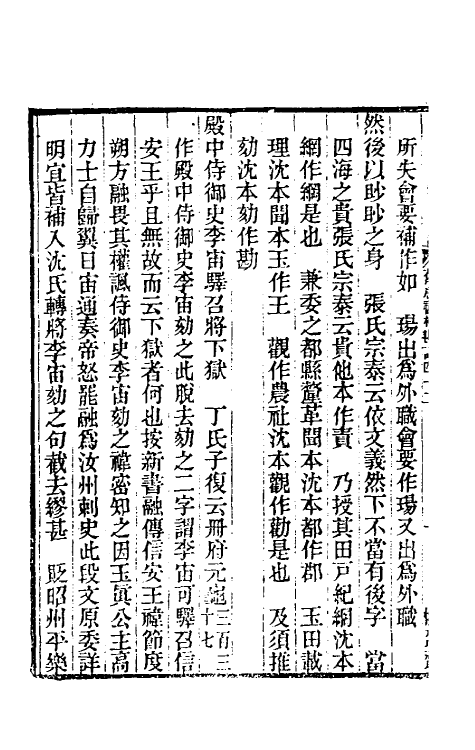 所失會要補作如　瑒出爲外職會要作瑒又出爲外職
然後以眇眇之身　張氏宗泰云依文義然下不當有後字　當
四海之貴張氏宗泰云貴他本作責　乃授其田戸紀綱沈本
網作綱是也　兼委之都縣釐革聞本沈本都作郡　玉田載
理沈本聞本玉作王　觀作農社沈本觀作勸是也　及須推
劾沈本劾作勘
殿中侍御史李宙驛召將下獄　丁氏子復云冊府元龜三百三十七
作殿中侍御史李宙劾之此脫去劾之二字謂李宙可驛召信
安王乎且無故而云下獄者何也按新書融傳信安王禕節度
朔方融畏其權諷侍御史李宙劾之禕密知之因玉眞公主高
力士自歸翼日宙通奏帝怒罷融爲汝州刺史此段文原委詳
明宜皆補入沈氏轉將李宙劾之句截去繆甚　貶昭州平樂